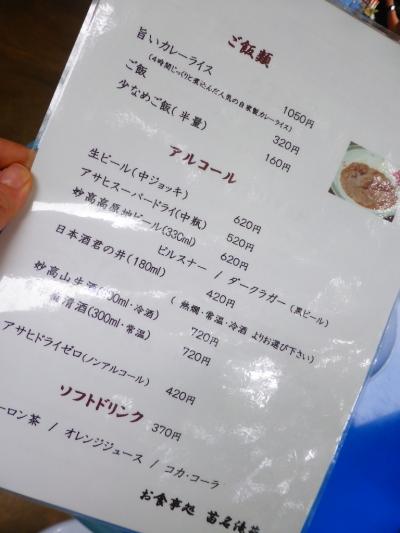 ご飯類
旨いカレーライス 1050円
(4時間じっくりと煮込んだ人気の自家製カレーライス)
ご飯 320円
少なめご飯(半量) 160円
アルコール
生ビール(中ジョッキ) 620円
アサヒスーパードライ(中瓶) 520円
妙高高原地ビール(33Cml) 620円
ピルスナー / ダークラガー(黒ビール)
日本酒君の井(180ml) 420円
(熱燗・常温・冷酒 よりお選び下さい)
妙高山生酒(300ml・冷酒) 720円
清酒(300ml・常温) 720円
アサヒドライゼロ(ノンアルコール) 420円
ソフトドリンク 370円
ーロン茶 / オレンジジュース / コカ・コーラ
お食事処 苗名滝